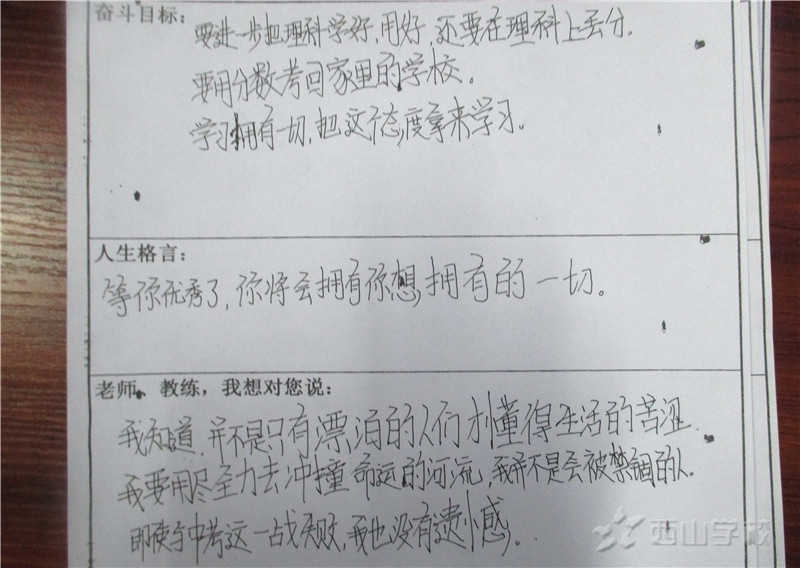 奋斗目标：
要进一步把理科学好，用好，还要在理科上丢分。
要用分数考回家里的学校。
学习拥有一切，把这个态度拿来学习。
人生格言：
等你优秀了，你将会拥有你想拥有的一切。
老师、教练，我想对您说：
我知道，并不是只有漂泊的人们才懂得生活的苦涩
我要用尽全力去冲撞命运的河流，我并不是会被禁锢的人。
即使与中考这一战失败，我也没有遗憾。
西山学校